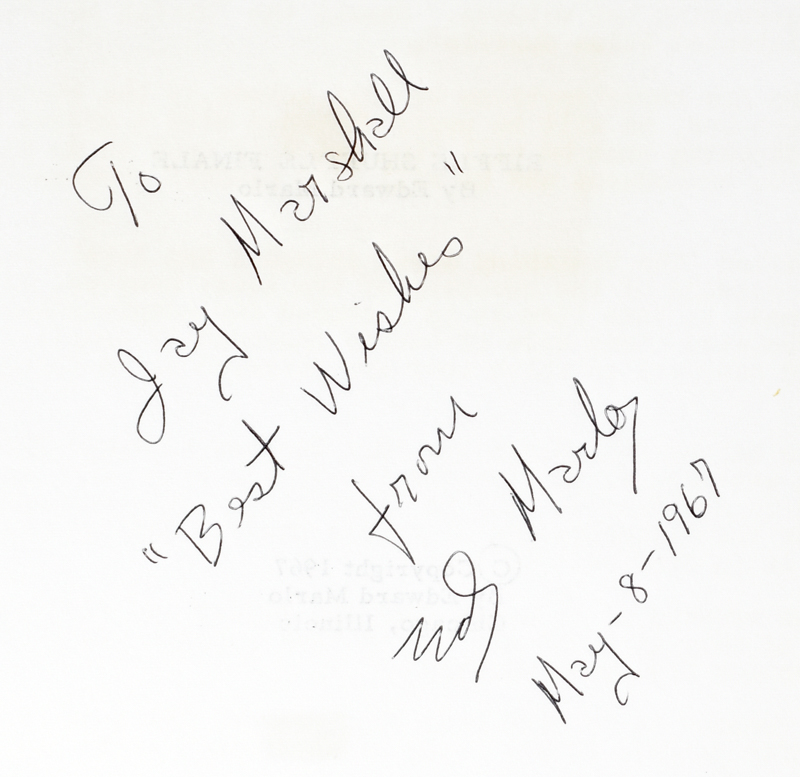 To
Jay Marshall
"Best Wishes"
from
Ed Marlo
May-8-1967
RIFFLE SHUFFLE FINALE
By Edward Marlo
© Copyright 1967
By Edward Marlo
Chicago, Illinois